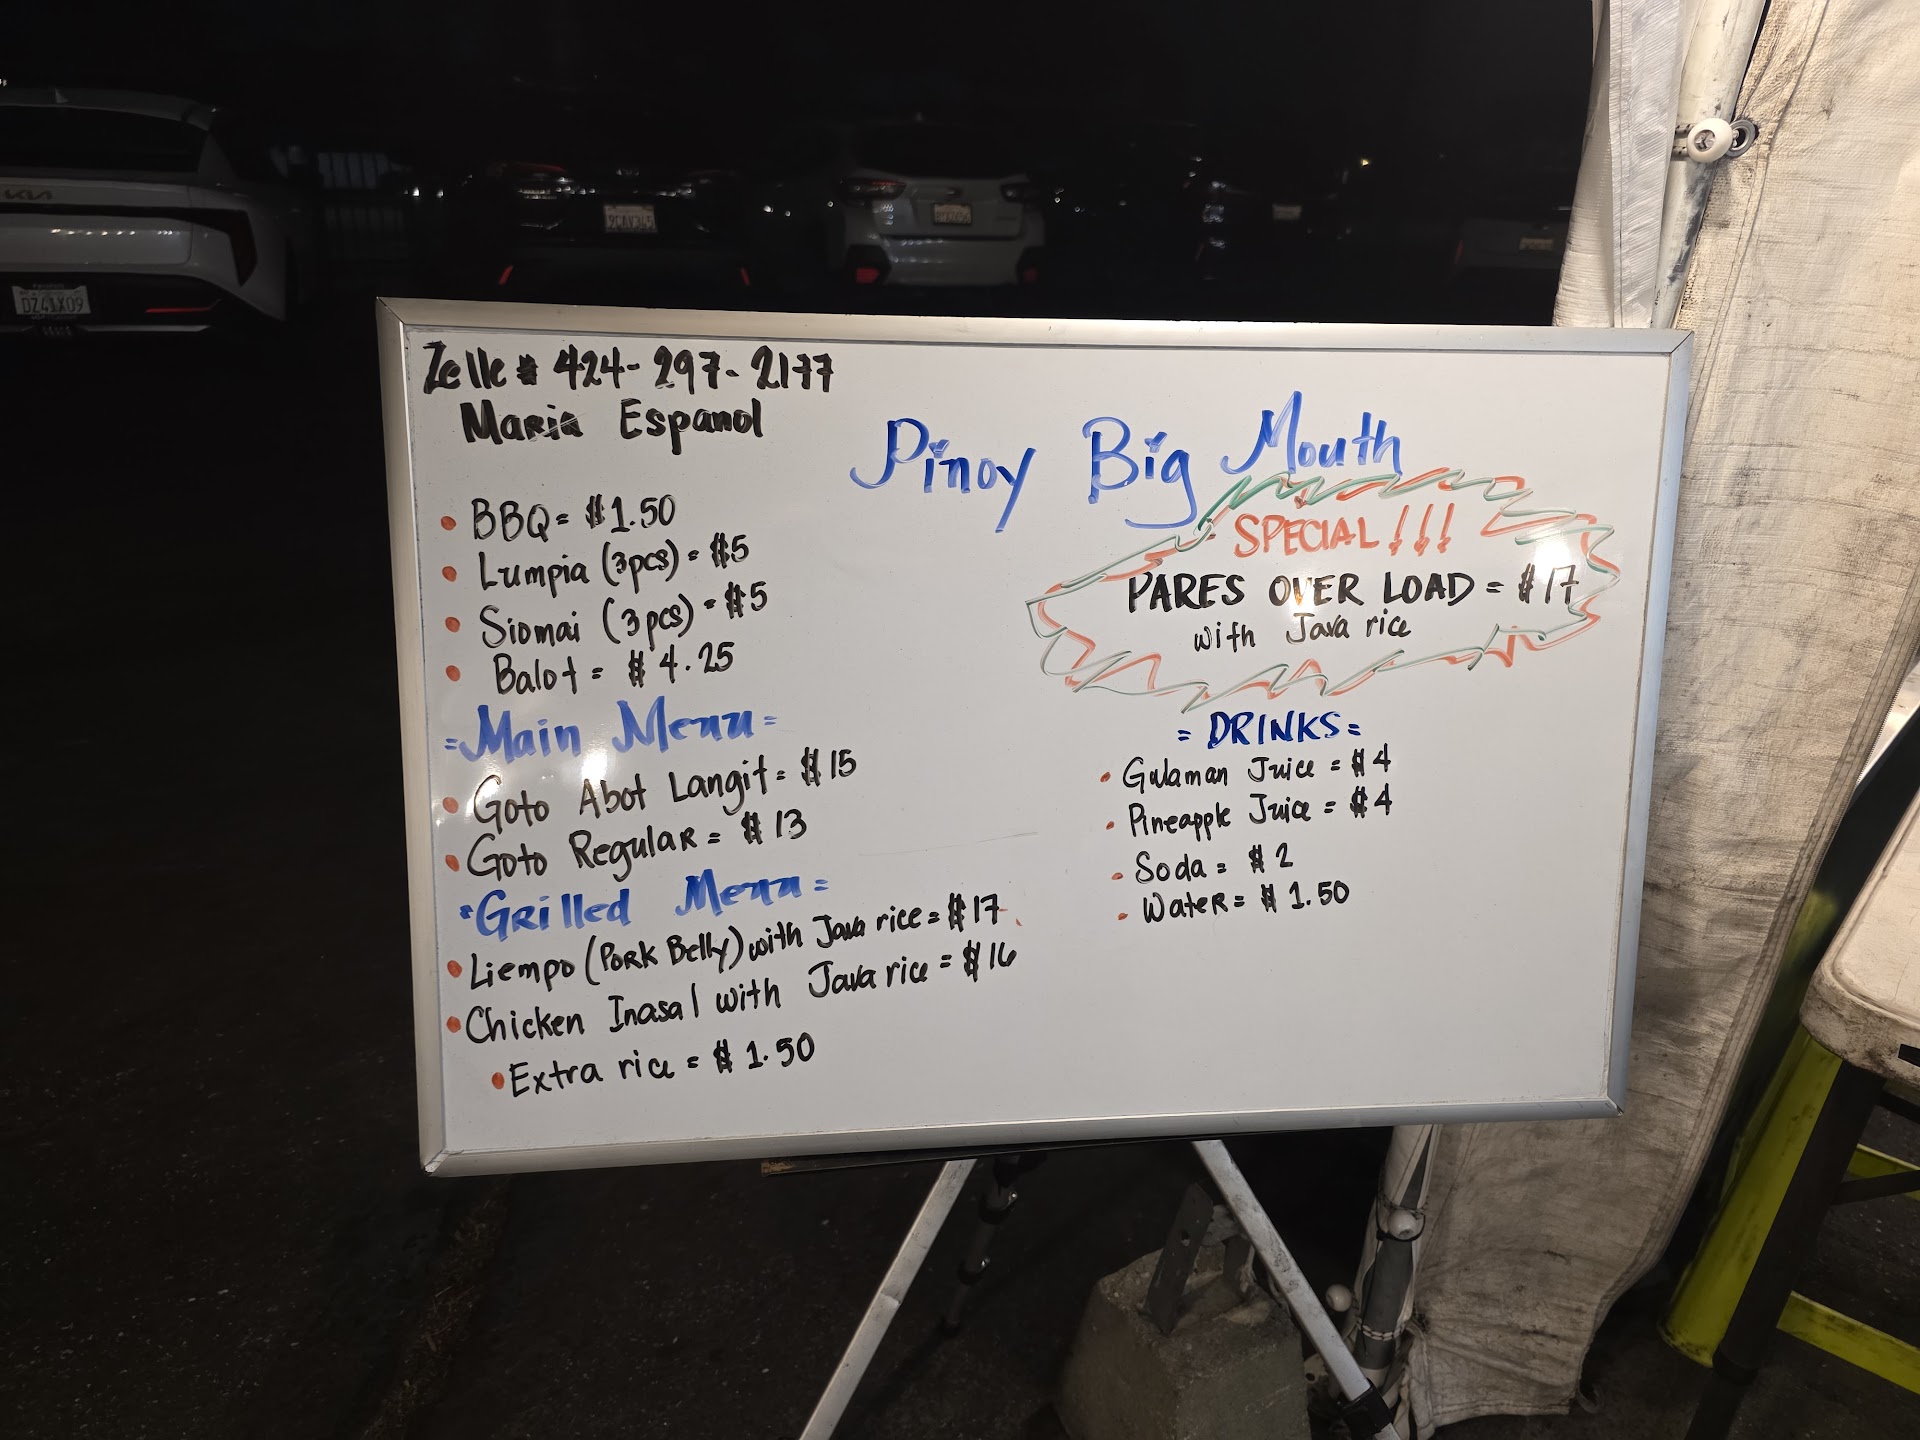 Zelle # 424-297-2177
Maria Espanol
Pinoy Big Mouth
• BBQ = $1.50
• Lumpia (3pcs) = $5
• Siomai (3pcs) = $5
• Balot = $4.25
SPECIAL!!!
PARES OVER LOAD = $17
with Java rice
= Main Menu =
• Goto Abot Langit = $15
• Goto Regular = $13
= Grilled Menu =
• Liempo (Pork Belly) with Java rice = $17
• Chicken Inasal with Java rice = $16
• Extra rice = $1.50
= DRINKS =
• Gulaman Juice = $4
• Pineapple Juice = $4
• Soda = $2
• Water = $1.50
KIA
DZ41X09